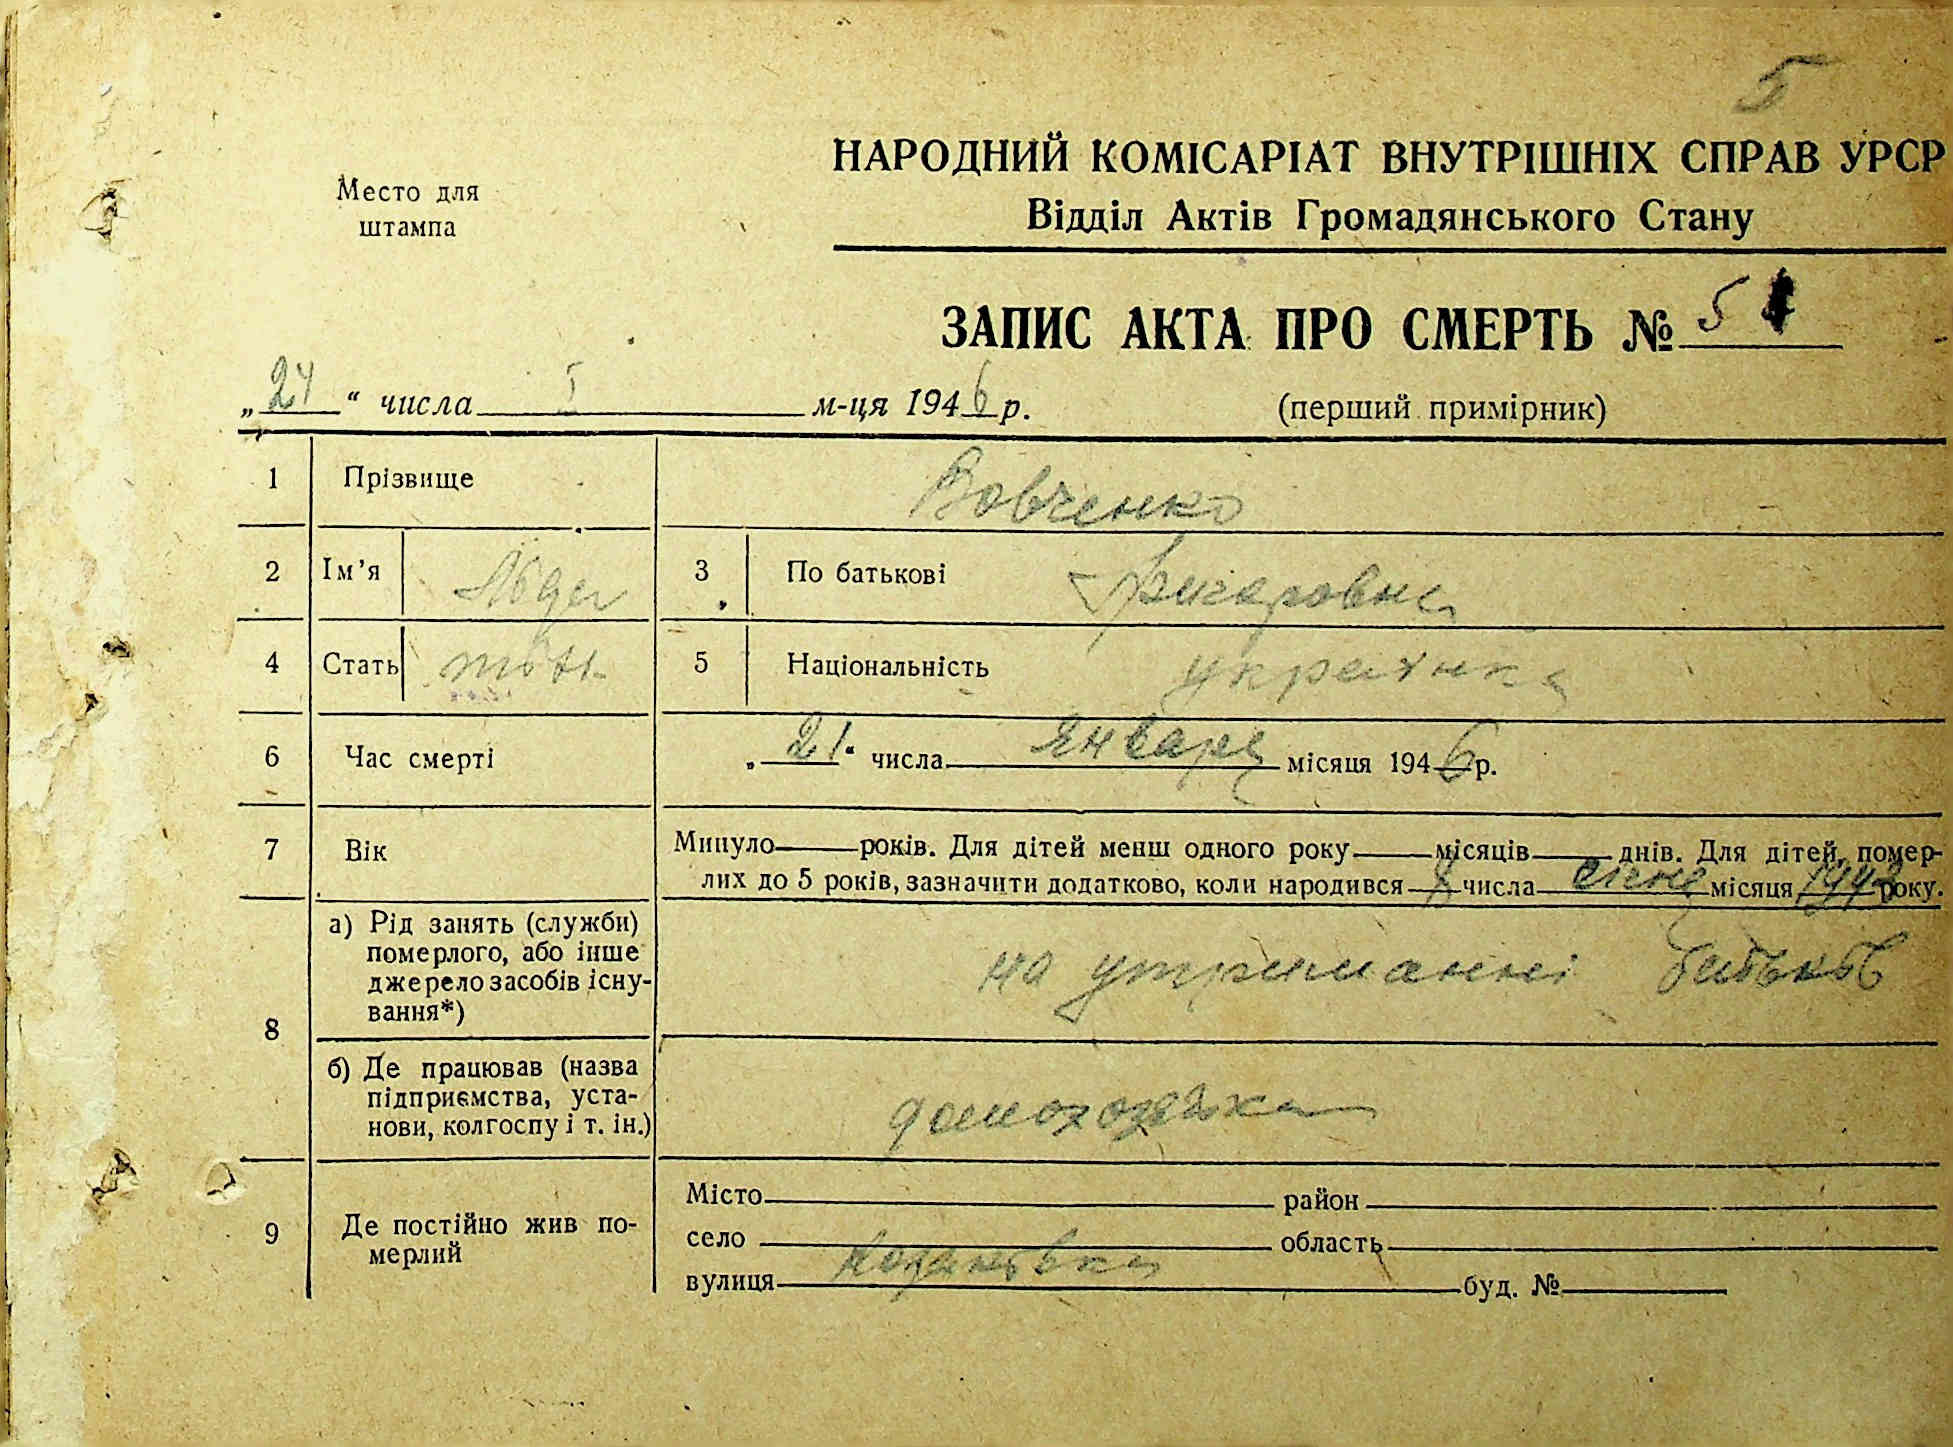 5
НАРОДНИЙ КОМІСАРІАТ ВНУТРІШНІХ СПРАВ УРСР
Место для
штампа
Відділ Актів Громадянського Стану
ЗАПИС АКТА ПРО СМЕРТЬ № 5
„24“ числа I м-ця 1946 р.
(перший примірник)
1 Прізвище Вовченко
2 Ім’я 3 По батькові
4 Стать 5 Національність українка
6 Час смерті „21“ числа января місяця 1946 р.
7 Вік Минуло — років. Для дітей менш одного року — місяців — днів. Для дітей, помер-
лих до 5 років, зазначити додатково, коли народився числа січня місяця 1943 року.
8 а) Рід занять (служби)
померлого, або інше
джерело засобів існу-
вання*)
на утриманні батьків
б) Де працював (назва
підприємства, уста-
нови, колгоспу і т. ін.)
домохозяйка
9 Де постійно жив по-
мерлий
Місто район
село область
вулиця буд. №